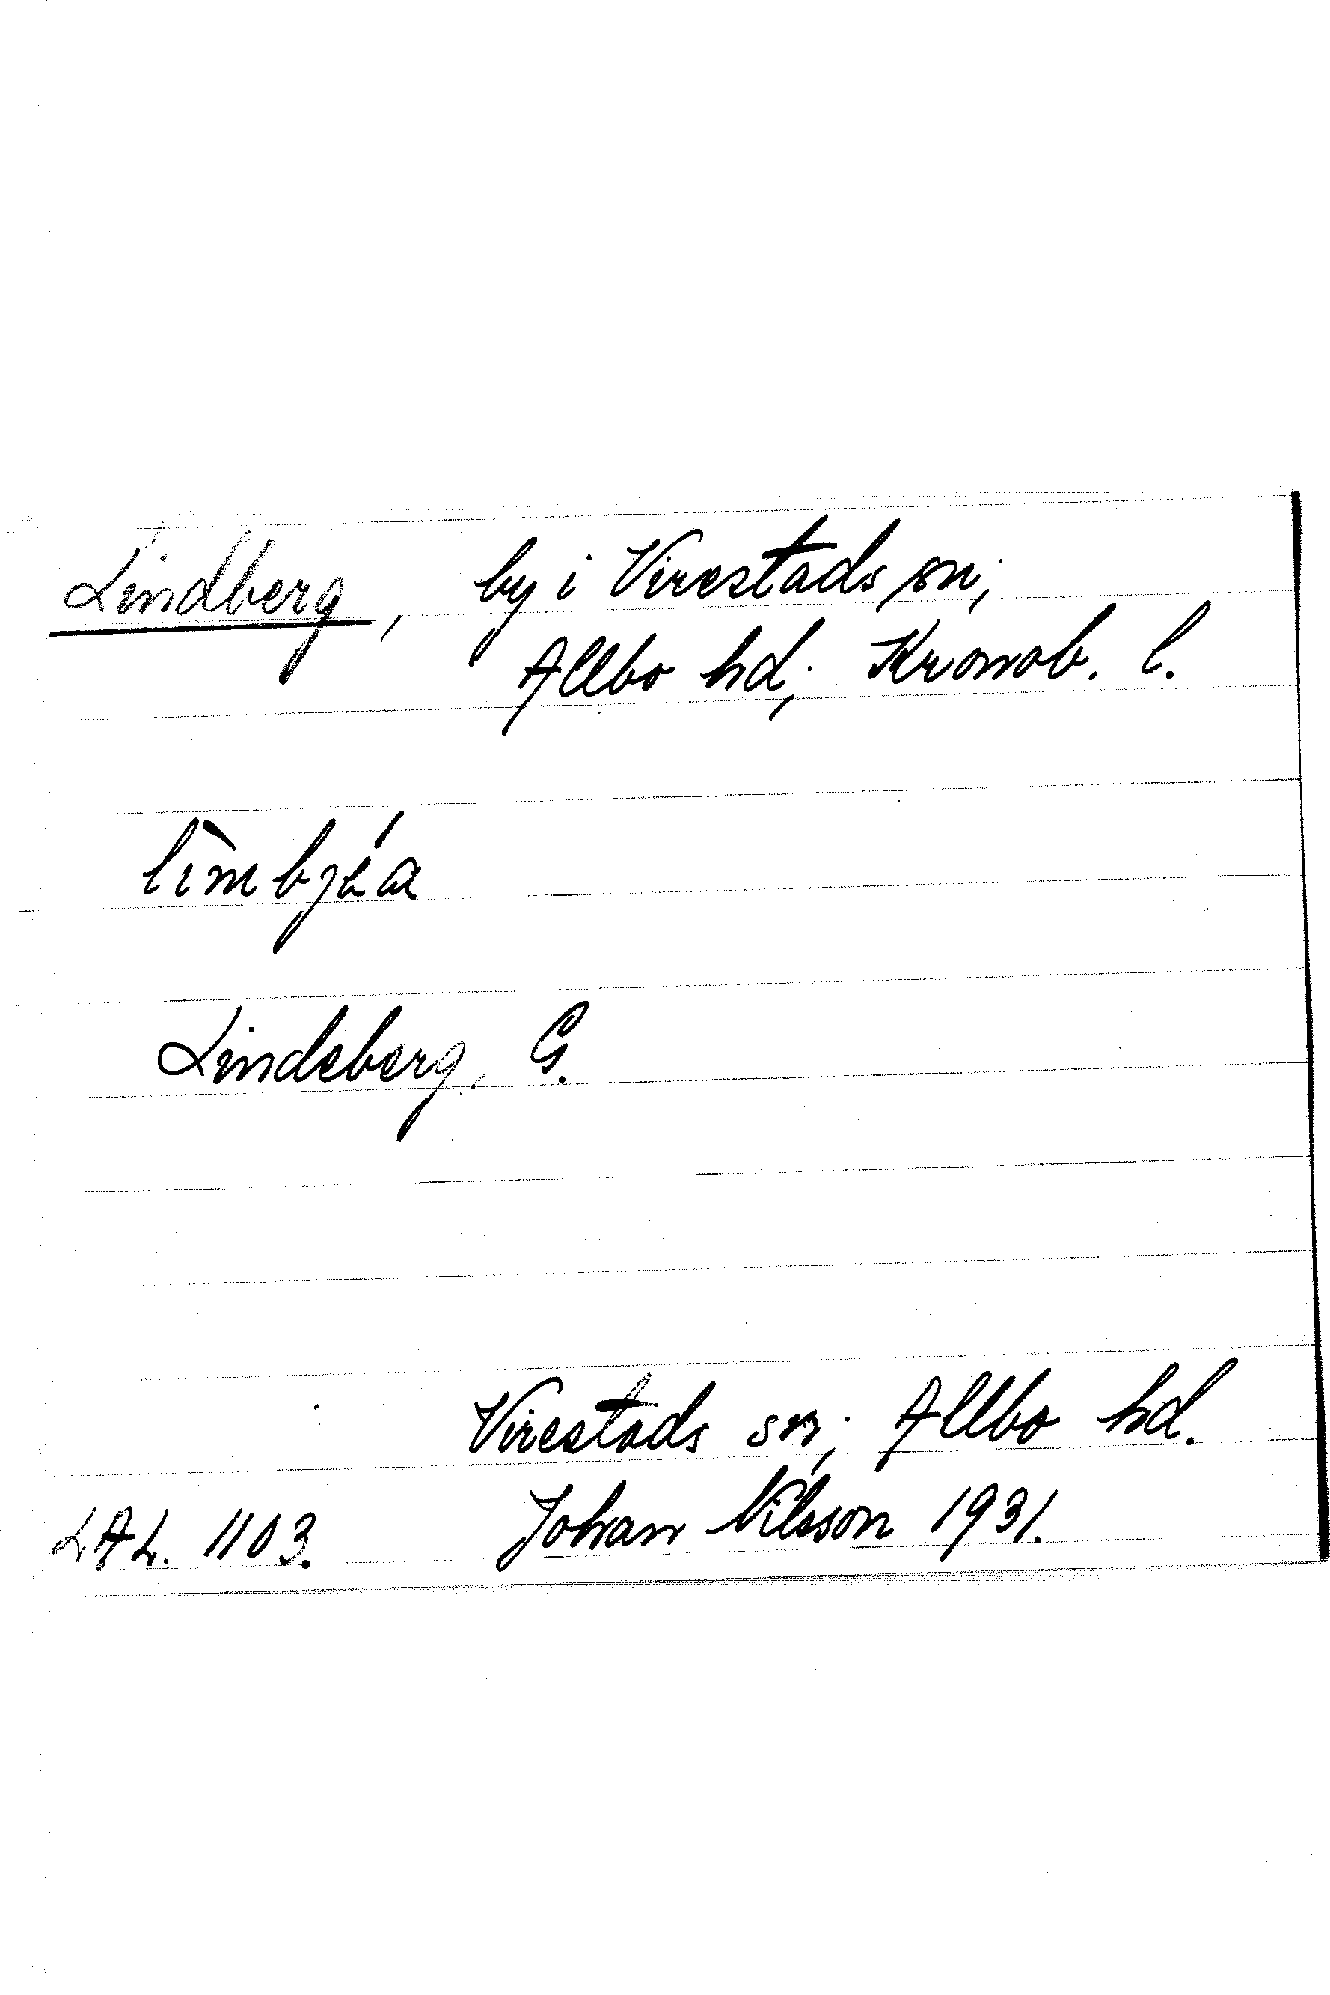 Lindberg, by i Virestads sn,
Allbo hd, Kronob. l.
Lindeberg, G.
Virestads sn, Allbo hd.
LAL. 1103. Johan Nilsson 1931.